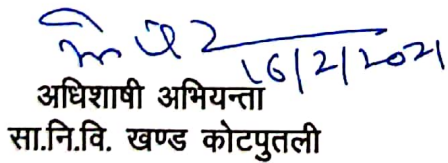 16/2/2021
अधिशाषी अभियन्ता
सा.नि.वि. खण्ड कोटपुतली